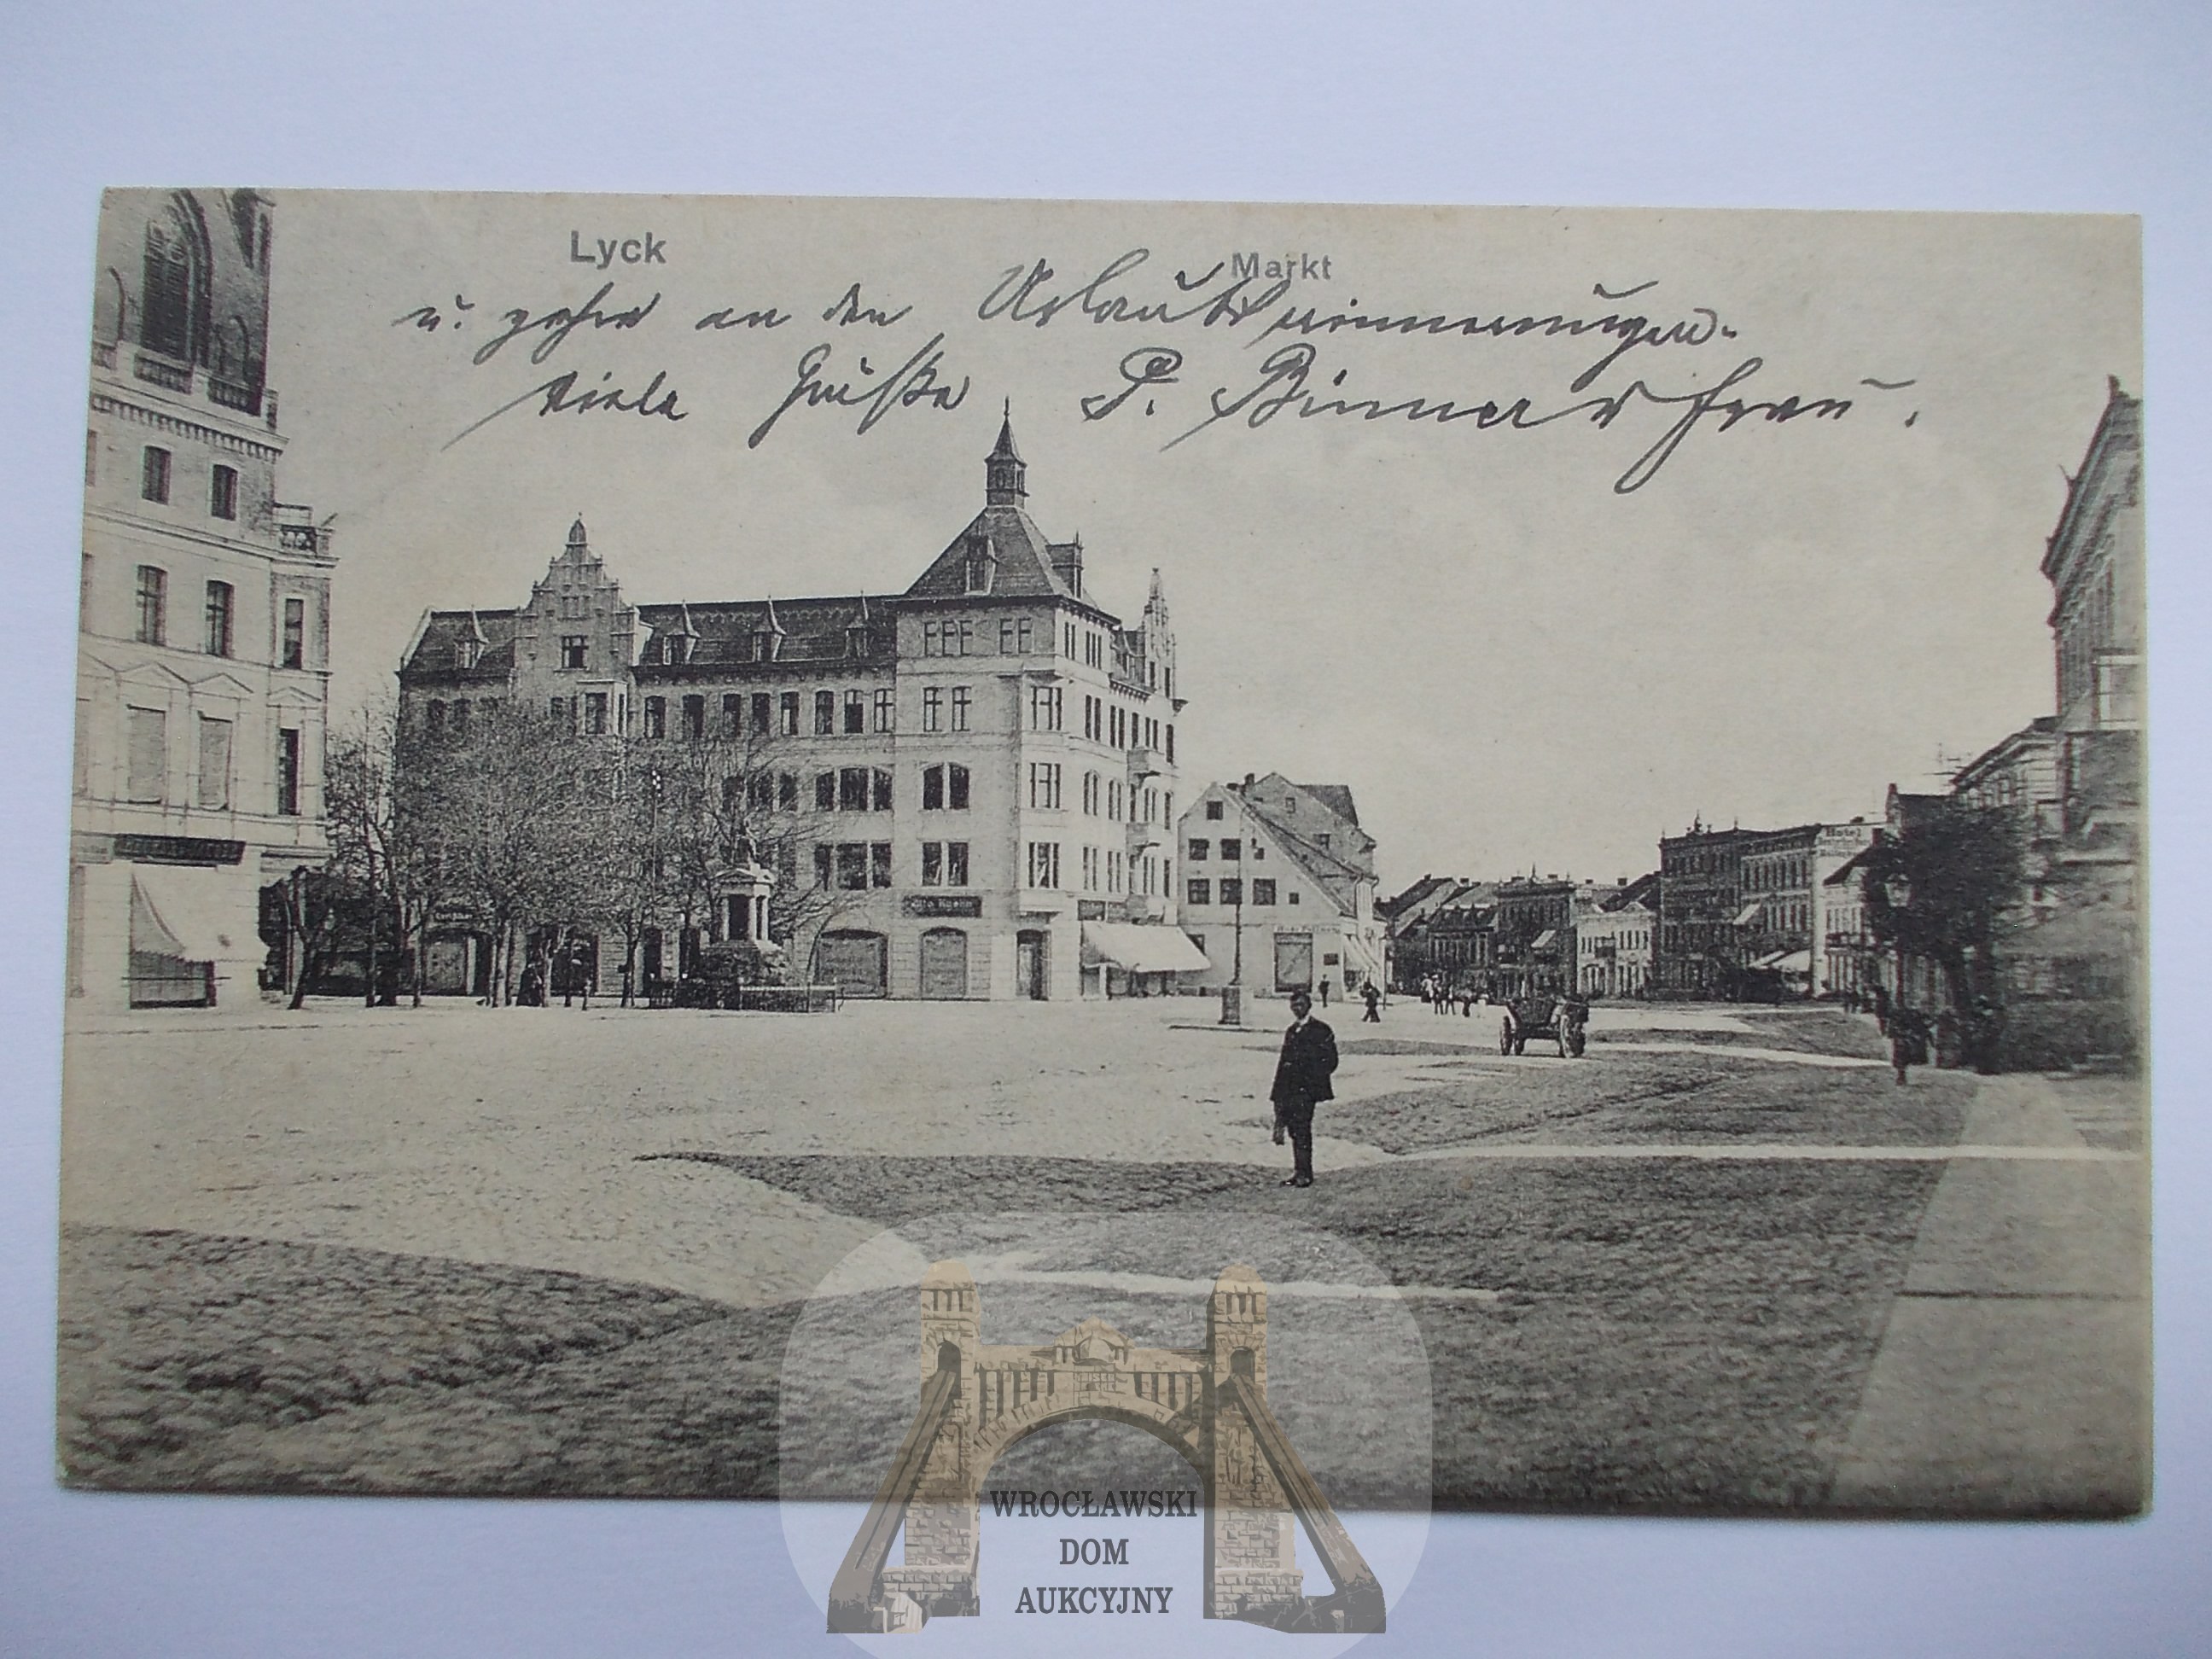 Lyck
Markt
u. zehre an den Urlaubserinnerungen.
Viele Grüße P. Binner u Frau.
Otto Koehn
Hotel
WROCŁAWSKI
DOM
AUKCYJNY